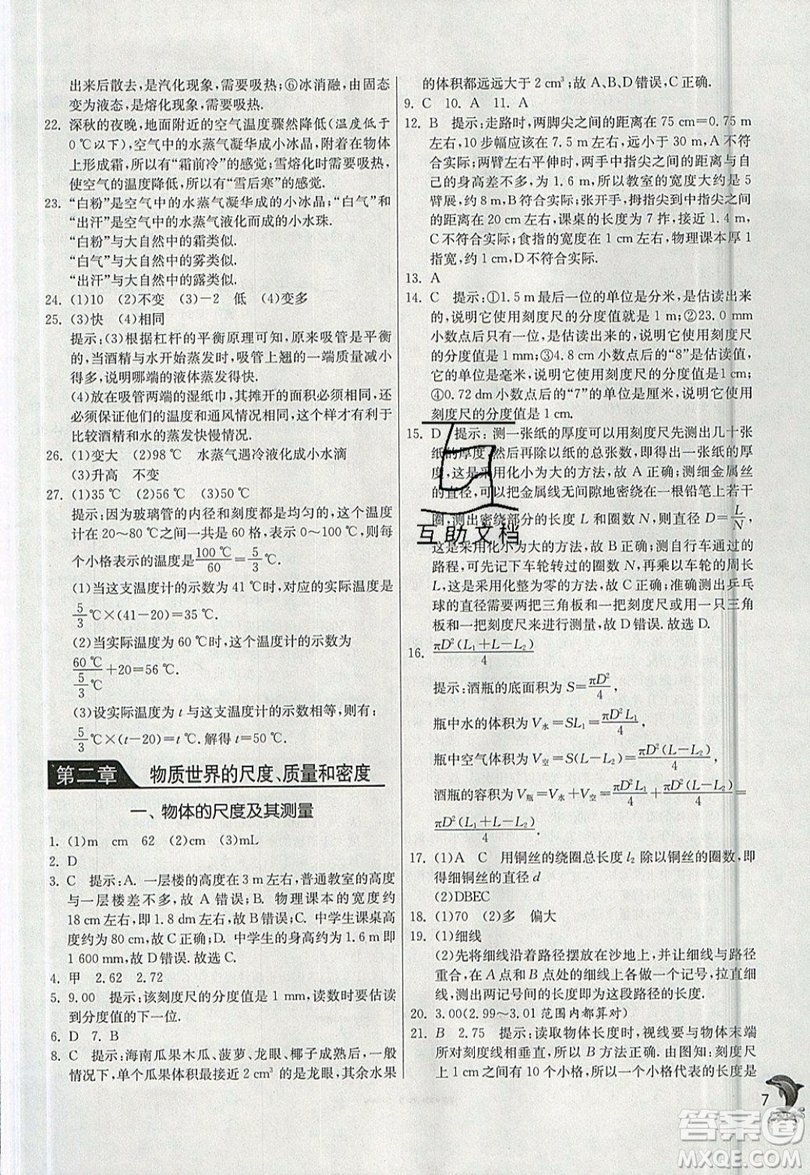 出来后散去,是汽化现象,需要吸热;⑥冰消融,由固态
变为液态,是熔化现象,需要吸热.
22. 深秋的夜晚,地面附近的空气温度骤然降低(温度在
0 ℃以下),空气中的水蒸气凝华成小冰晶,附着在物体
上形成霜,有“霜前冷”的感觉;雪熔化时需要吸热,
使空气的温度降低,所以有“雪后寒”的感觉.
23. “白粉”是空气中的水蒸气凝华成的小冰晶;“白气”和
“出汗”是空气中的水蒸气液化而成的小水珠.
“白粉”与大自然中的霜类似.
“白气”与大自然中的雾类似.
“出汗”与大自然中的露类似.
24. (1)10 (2)不变 (3)-2 低 (4)变多
25. (3)快 (4)相同
提示:(3)根据杠杆的平衡原理可知:保持吸管的平
衡,当酒精与水开始蒸发时,吸管上翘的一端质量变
小,说明哪端的液体蒸发得快.
(4)放在吸管两端的湿纸巾,其摊开的面积必须相同,还
必须保证他们的温度和流速也都要相同,这样有利于
比较酒精和水的蒸发快慢情况.
26. (1)变大 (2)92 水蒸气遇冷液化成小水滴
(3)升高 不变
27. (1)35 ℃ (2)56 ℃ (3)50 ℃
提示:因为玻璃管的内径和刻度都是均匀的,这支温度
计在20~80℃之间一共是60格,表示0~100℃,则每
个小格表示的温度是100 ℃/60=5/3 ℃.
(1)当这支温度计的示数为 41 ℃时,对应的实际温度是
5/3 ℃×(41-20)=35 ℃.
(2)当实际温度为 60 ℃时,这支温度计的示数为
60 ℃/(5/3 ℃)+20=56 ℃.
(3)设实际温度为 t 与这支温度计的示数相等,则有:
5/3 ℃×(t-20)=t ℃. 解得 t=50 ℃.
第二章 物质世界的尺度、质量和密度
一、物体的尺度及其测量
1. (1)m cm 62 (2)cm (3)mL
2. D
3. C 提示:A. 一层楼的高度在 3 m 左右,普通教室的高度
与一层楼差不多,故 A 错误;B. 物理课本的宽度约
18 cm 左右,即 1.8 dm 左右,故 B 错误;C. 中学生课桌高
度约为 80 cm,故 C 正确;D. 中学生的身高约为 1.6 m,即
1 600 mm,故 D 错误.
4. 甲 2.62 2.72
5. 9.00 提示:该刻度尺的分度值是 1 mm,读数时要估读
到分度值的下一位.
6. D 7. B
8. C 提示:海南瓜果木瓜、菠萝、龙眼、椰子成熟后,一般
情况下,单个瓜果体积接近 2 cm³ 的是龙眼,其余水果
的体积都远远大于 2 cm³;故 A、B、D 错误,C 正确.
9. C 10. A 11. A
12. B 提示:走路时,两脚尖之间的距离在 75 cm=0.75 m
左右,10 步幅应该在 7.5 m 左右,远小于 30 m,A 不符
合实际;两臂左右平伸时,两手中指尖之间的距离与自
己的身高差不多,为 1.6 m 左右,所以教室的宽度是 5
臂展,约 8 m,B 符合实际;张开手,拇指尖与中指尖之间
的距离在 20 cm 左右,课桌的长度为 7 拃,接近 1.4 m,
C 不符合实际;食指的宽度在 1 cm 左右,物理课本厚 1
指宽,即为 1 cm,D 不符合实际.
13. A
14. C 提示:①1.5 m 最后一位的单位是分米,是估读出来
的,说明它使用刻度尺的分度值就是 1 m;②23.0 mm
小数点后的“0”是估读出来的,说明它使用刻度尺
的分度值是 1 mm;③4.8 cm 小数点后的“8”是估读值,
它的单位是毫米,说明它使用刻度尺的分度值是 1 cm;
④0.72 dm 小数点后的“7”的单位是厘米,说明它使用
刻度尺的分度值是 1 cm.
15. D 提示:测一张纸的厚度可以用刻度尺先测出几十张
纸的厚度,然后再除以纸的总张数,就是一张纸的厚
度,这是采用化小为大的方法,故 A 正确;测细金属丝
的直径,可以把金属线无间隙地密绕在一根铅笔上若干
圈,测出密绕部分的长度 L 和圈数 N,则直径 D=L/N,
这是采用化小为大的方法,故 B 正确;测自行车通过的
路程,可先记下车轮转过的圈数 N,再乘以车轮的周长,
这是采用化整为零的方法,故 C 正确;准确测出乒乓
球的直径需要两把三角板和一把刻度尺,只用一把三角
板和一把刻度尺进行测量,方法错误,故选 D.
16. πD²(L₁+L-L₂)/4
提示:酒瓶的底面积为 S=πD²/4,
瓶中水的体积为 V水=SL₁=πD²L₁/4,
瓶中空气体积为 V空=S(L-L₂)=πD²(L-L₂)/4,
酒瓶的容积为 V瓶=V水+V空=πD²L₁/4+πD²(L-L₂)/4=
πD²(L₁+L-L₂)/4.
17. (1)A C 用铜丝的绕圈总长度 l₂ 除以铜丝的圈数,即
得细铜丝的直径 d
(2)DBEC
18. (1)70 (2)多 偏大
19. (1)细线
(2)先将细线沿着路径摆放在沙地上,使细线与路径
重合,在 A 点和 B 点处的细线上各做一个记号,拉直细
线,测出两个记号之间的长度即为路径的长度.
20. 3.00(2.99~3.01 范围内都算对)
21. B 2.75 提示:读取物体长度时,视线要与物体末端
所对刻度线相垂直,所以 B 正确. 由图知:刻度尺上
1 cm 之间有 10 个小格,所以一个小格代表的长度是
7
互助文档
答案圈
MXQE.COM